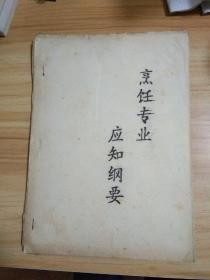 烹饪专业
应知纲要